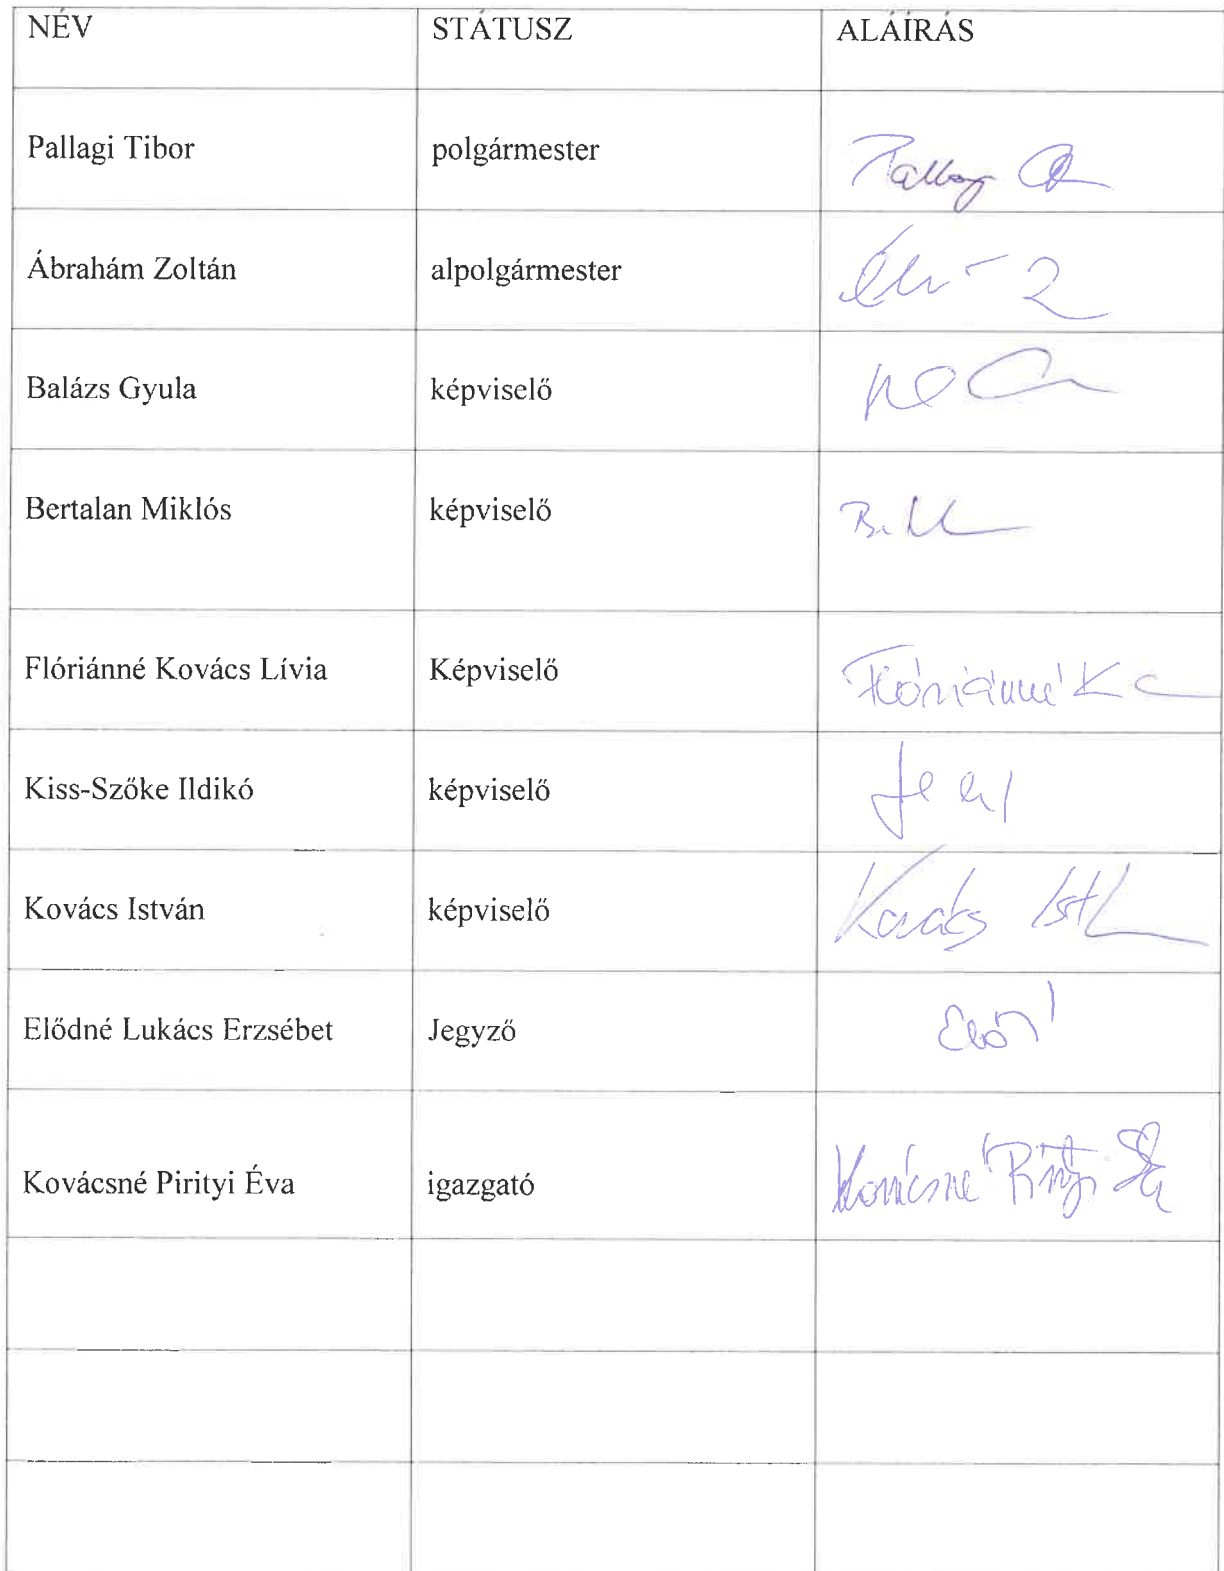 NÉV STÁTUSZ ALÁÍRÁS
Pallagi Tibor polgármester
Ábrahám Zoltán alpolgármester
Balázs Gyula képviselő
Bertalan Miklós képviselő
Flóriánné Kovács Lívia Képviselő Flóriánné K
Kiss-Szőke Ildikó képviselő
Kovács István képviselő Kovács Ist
Elődné Lukács Erzsébet Jegyző
Kovácsné Pirityi Éva igazgató Kovácsné